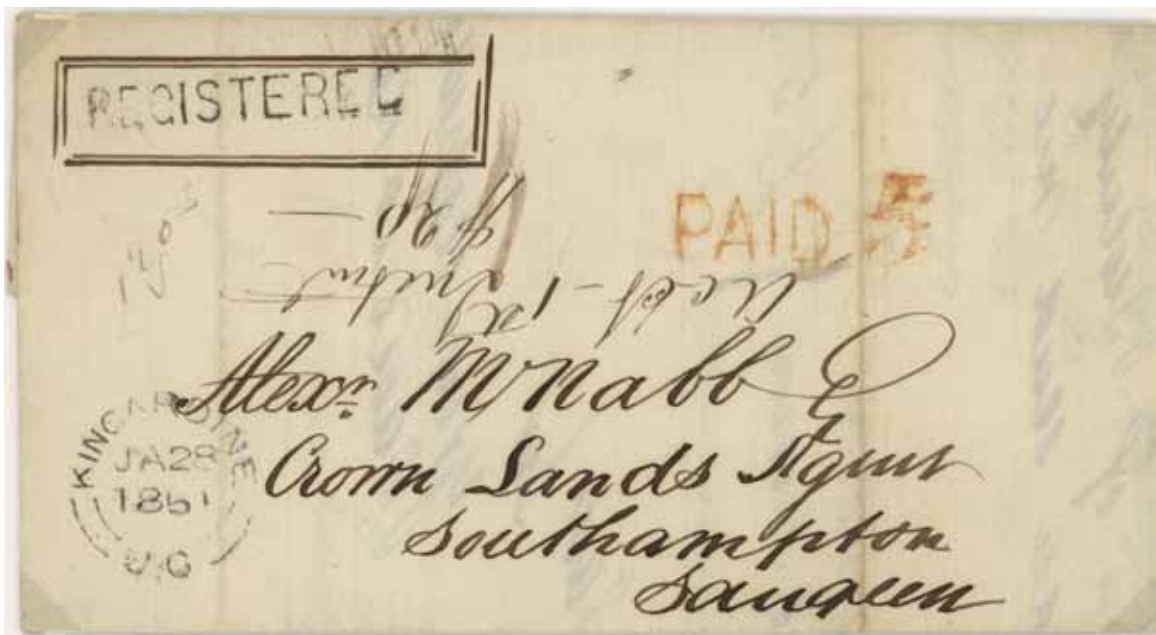 REGISTERED
PAID 5
$20
Alexr. McNabb
Crown Lands Agent
Southampton
Saugeen
KINCARDINE
JA 28
1861
U.C